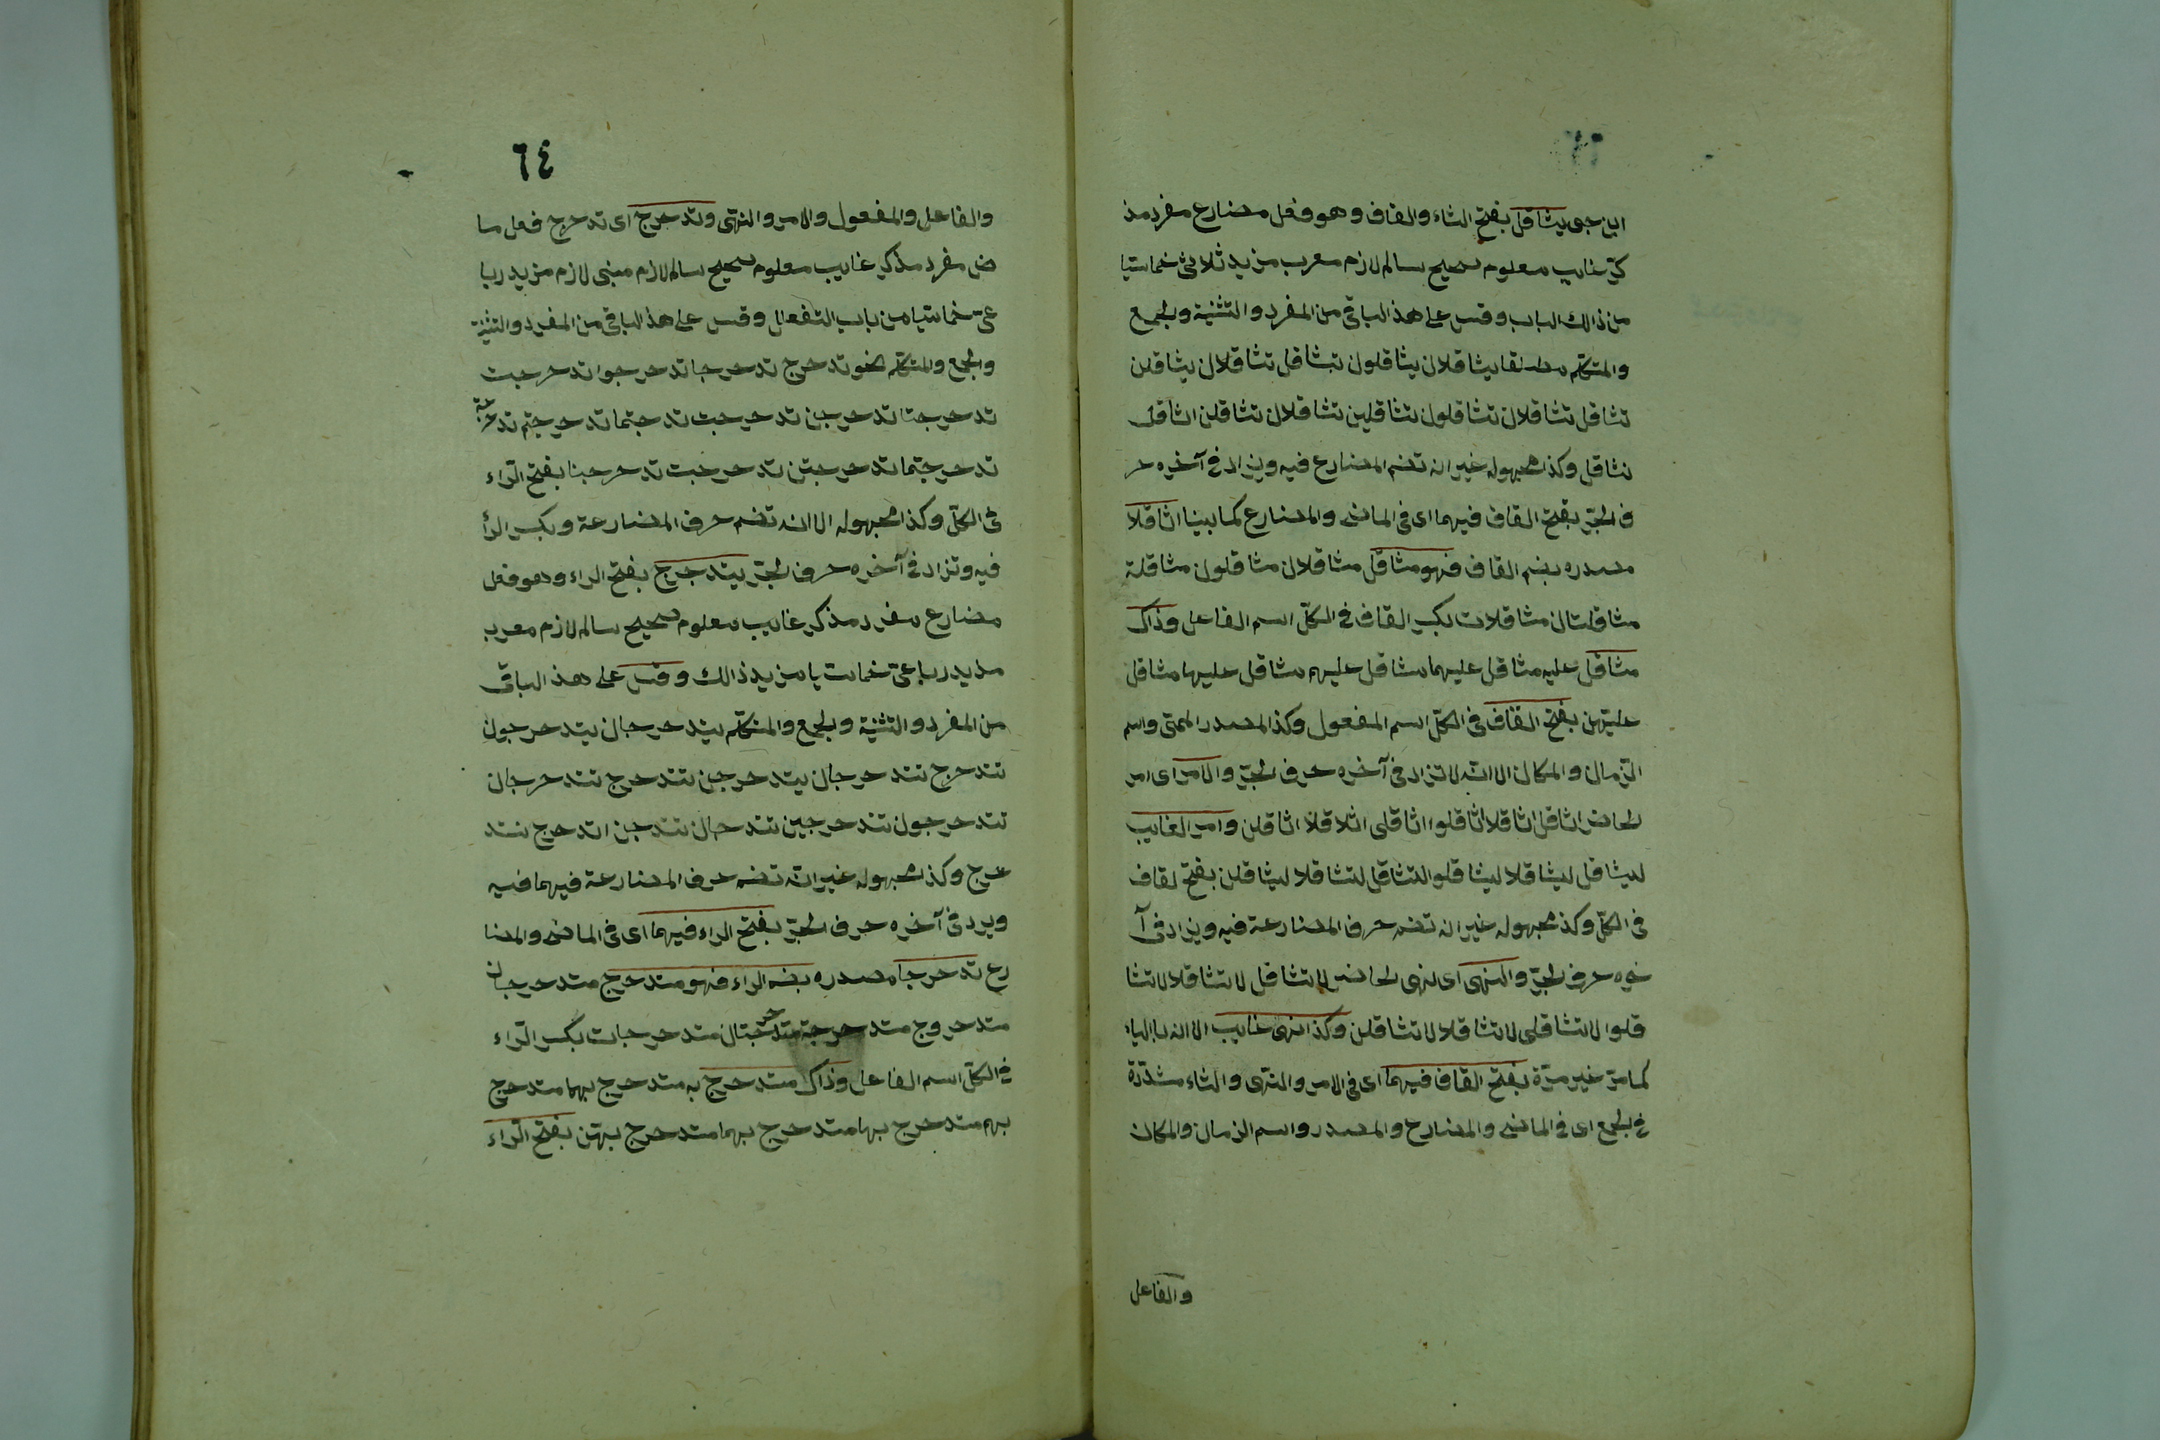 ابن جى يثاقل بفتح الثاء والقاف وهو فعل مضارع مفرد مذ
كر غايب معلوم صحيح سالم لازم معرب مزيد ثلاثى خماسيا
من ذالك الباب وقس على هذ الباقى من المفرد والتثنية ولجمع
والمتكلم مطلقا يثاقلان يثاقلون تثاقل تثاقلان يثاقلن
تثاقل تثاقلان تثاقلون تثاقلين تثاقلان تثاقلن اثاقل
نثاقل وكذ مجهوله غير انه تضم المضارع فيه ويزاد فى آخره حر
ف الجر بفتح القاف فيهما اى فى الماضى والمضارع كما بينا اثاقلا
مصدره بضم القاف فهو مثاقل مثاقلان مثاقلون مثاقلة
مثاقلتان مثاقلات بكسر القاف فى الكل اسم الفاعل وذاك
مثاقل عليه مثاقل عليهما مثاقل عليهم مثاقل عليها مثاقل
عليهن بفتح القاف فى الكل اسم المفعول وكذ المصدر الميمى واسم
الزمان والمكان الا انه لا تزاد فى آخره حرف الجر والامر اى امر
لحاضر اثاقل اثاقلا اثاقلوا اثاقلى اثلاقلا اثاقلن وامر الغايب
ليثاقل ليثاقلا ليثاقلوا لتثاقل لتثاقلا ليثاقلن بفتح لقاف
فى الكل وكذ مجهوله غير انه تضم حرف المضارعة فيه ويزاد فى آ
خره حرف الجر والنهى اى نهى لحاضر لا تثاقل لا تثاقلا لا تثا
قلوا لا تثاقلى لا تثاقلا لا تثاقلن وكذ انهى غايب الا انه بالياء
كما مر غير مرة بفتح القاف فيهما اى فى الامر والنهى والثاء مشددة
فى لجمع اى فى الماضى والمضارع والمصدر واسم الزمان والمكان
والفاعل
٦٤
والفاعل والمفعول والامر والنهى وتدحرج اى تدحرج فعل ما
ض مفرد مذكر غايب معلوم صحيح سالم لازم مبنى لازم مزيد ربا
عى خماسيا من باب التفعلل وقس على هذ الباقى من المفرد والتثنية
والجمع والمتكلم نحو تدحرج تدحرجا تدحرجوا تدحرجت
تدحرجتا تدحرجن تدحرجت تدحجتما تدحرجتم تدحرجت
تدحرجتما تدحرجتن تدحرجت تدحرجنا بفتح الراء
فى الكل وكذ المجهوله الا انه تضم حرف المضارعة وبكسر الرأ
فيه وتزاد فى آخره حرف لجر يتدحرج بفتح الراء وهو فعل
مضارع مفرد مذكر غايب معلوم صحيح سالم لازم معرب
مذيد رباعى خماسيا مزيد ذالك وقس على هذ الباقى
من المفرد والتثنية ولجمع والمتكلم يتدحرجان يتدحرجون
تتدحرج تتدحرجان يتدحرجن تتدحرج تتدحرجان
تتدحرجون تتدحرجين تتدحان تتدجن اتدحرج نتد
حرج وكذ مجهوله غير انه تضم حرف المضارعة فيهما فيه
ويرد فى آخره حرف الجر بفتح الراء فيهما اى فى الماضى والمضا
رع تدحرجا مصدره بضم الراء فهو متدحرج متدحرجان
متدحروج متدحرجة متدحرجتان متدحرجات بكسر الراء
فى الكل اسم الفاعل وذاك متدحرج به متدحرج بهما متدحرج
بهم متدحرج بها متدحرج بهما متدحرج بهن بفتح الراء